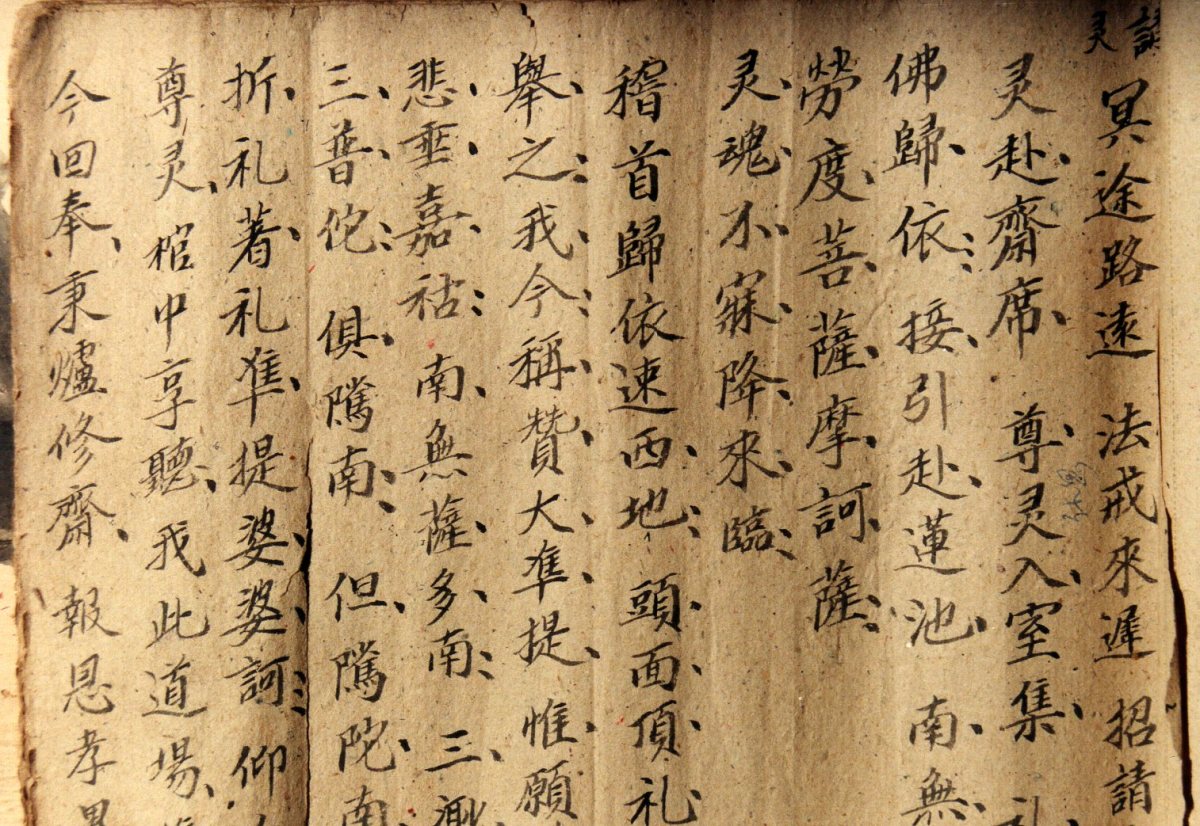 請灵
冥途路远 法戒來遲 招請
灵赴齋席 尊灵入室集 礼
佛歸依 接引赴蓮池 南無
勞度菩薩摩訶薩
灵魂不寐降來臨
稽首歸依速西地 頭面頂礼
舉之我今稱贊大準提 惟願
悲垂嘉祜 南無薩多南 三
三普佗 俱隲南 但隲陀 南
折礼著礼准提婆婆訶 仰
尊灵棺中享聽 我此道場
今回奉秉爐修齋 報恩孝男